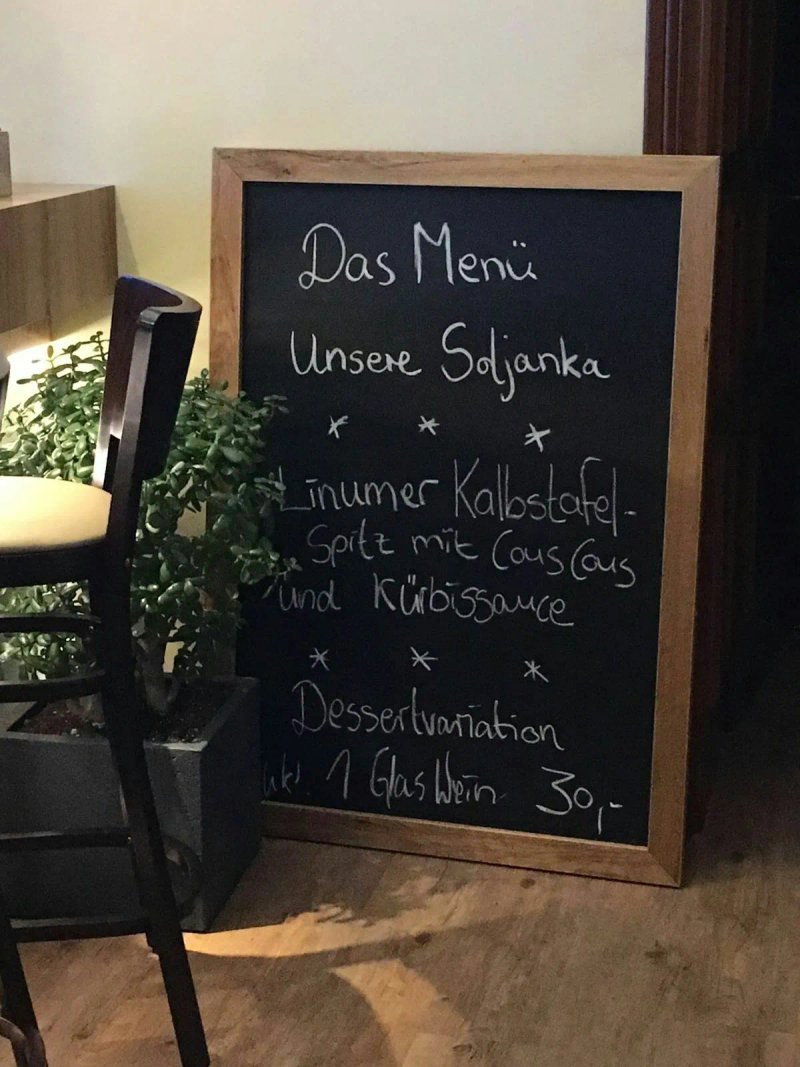 Das Menü
Unsere Soljanka
* * *
Linumer Kalbstafel-
Spitz mit CousCous
und Kürbissauce
* * *
Dessertvariation
inkl. 1 Glas Wein 30,-